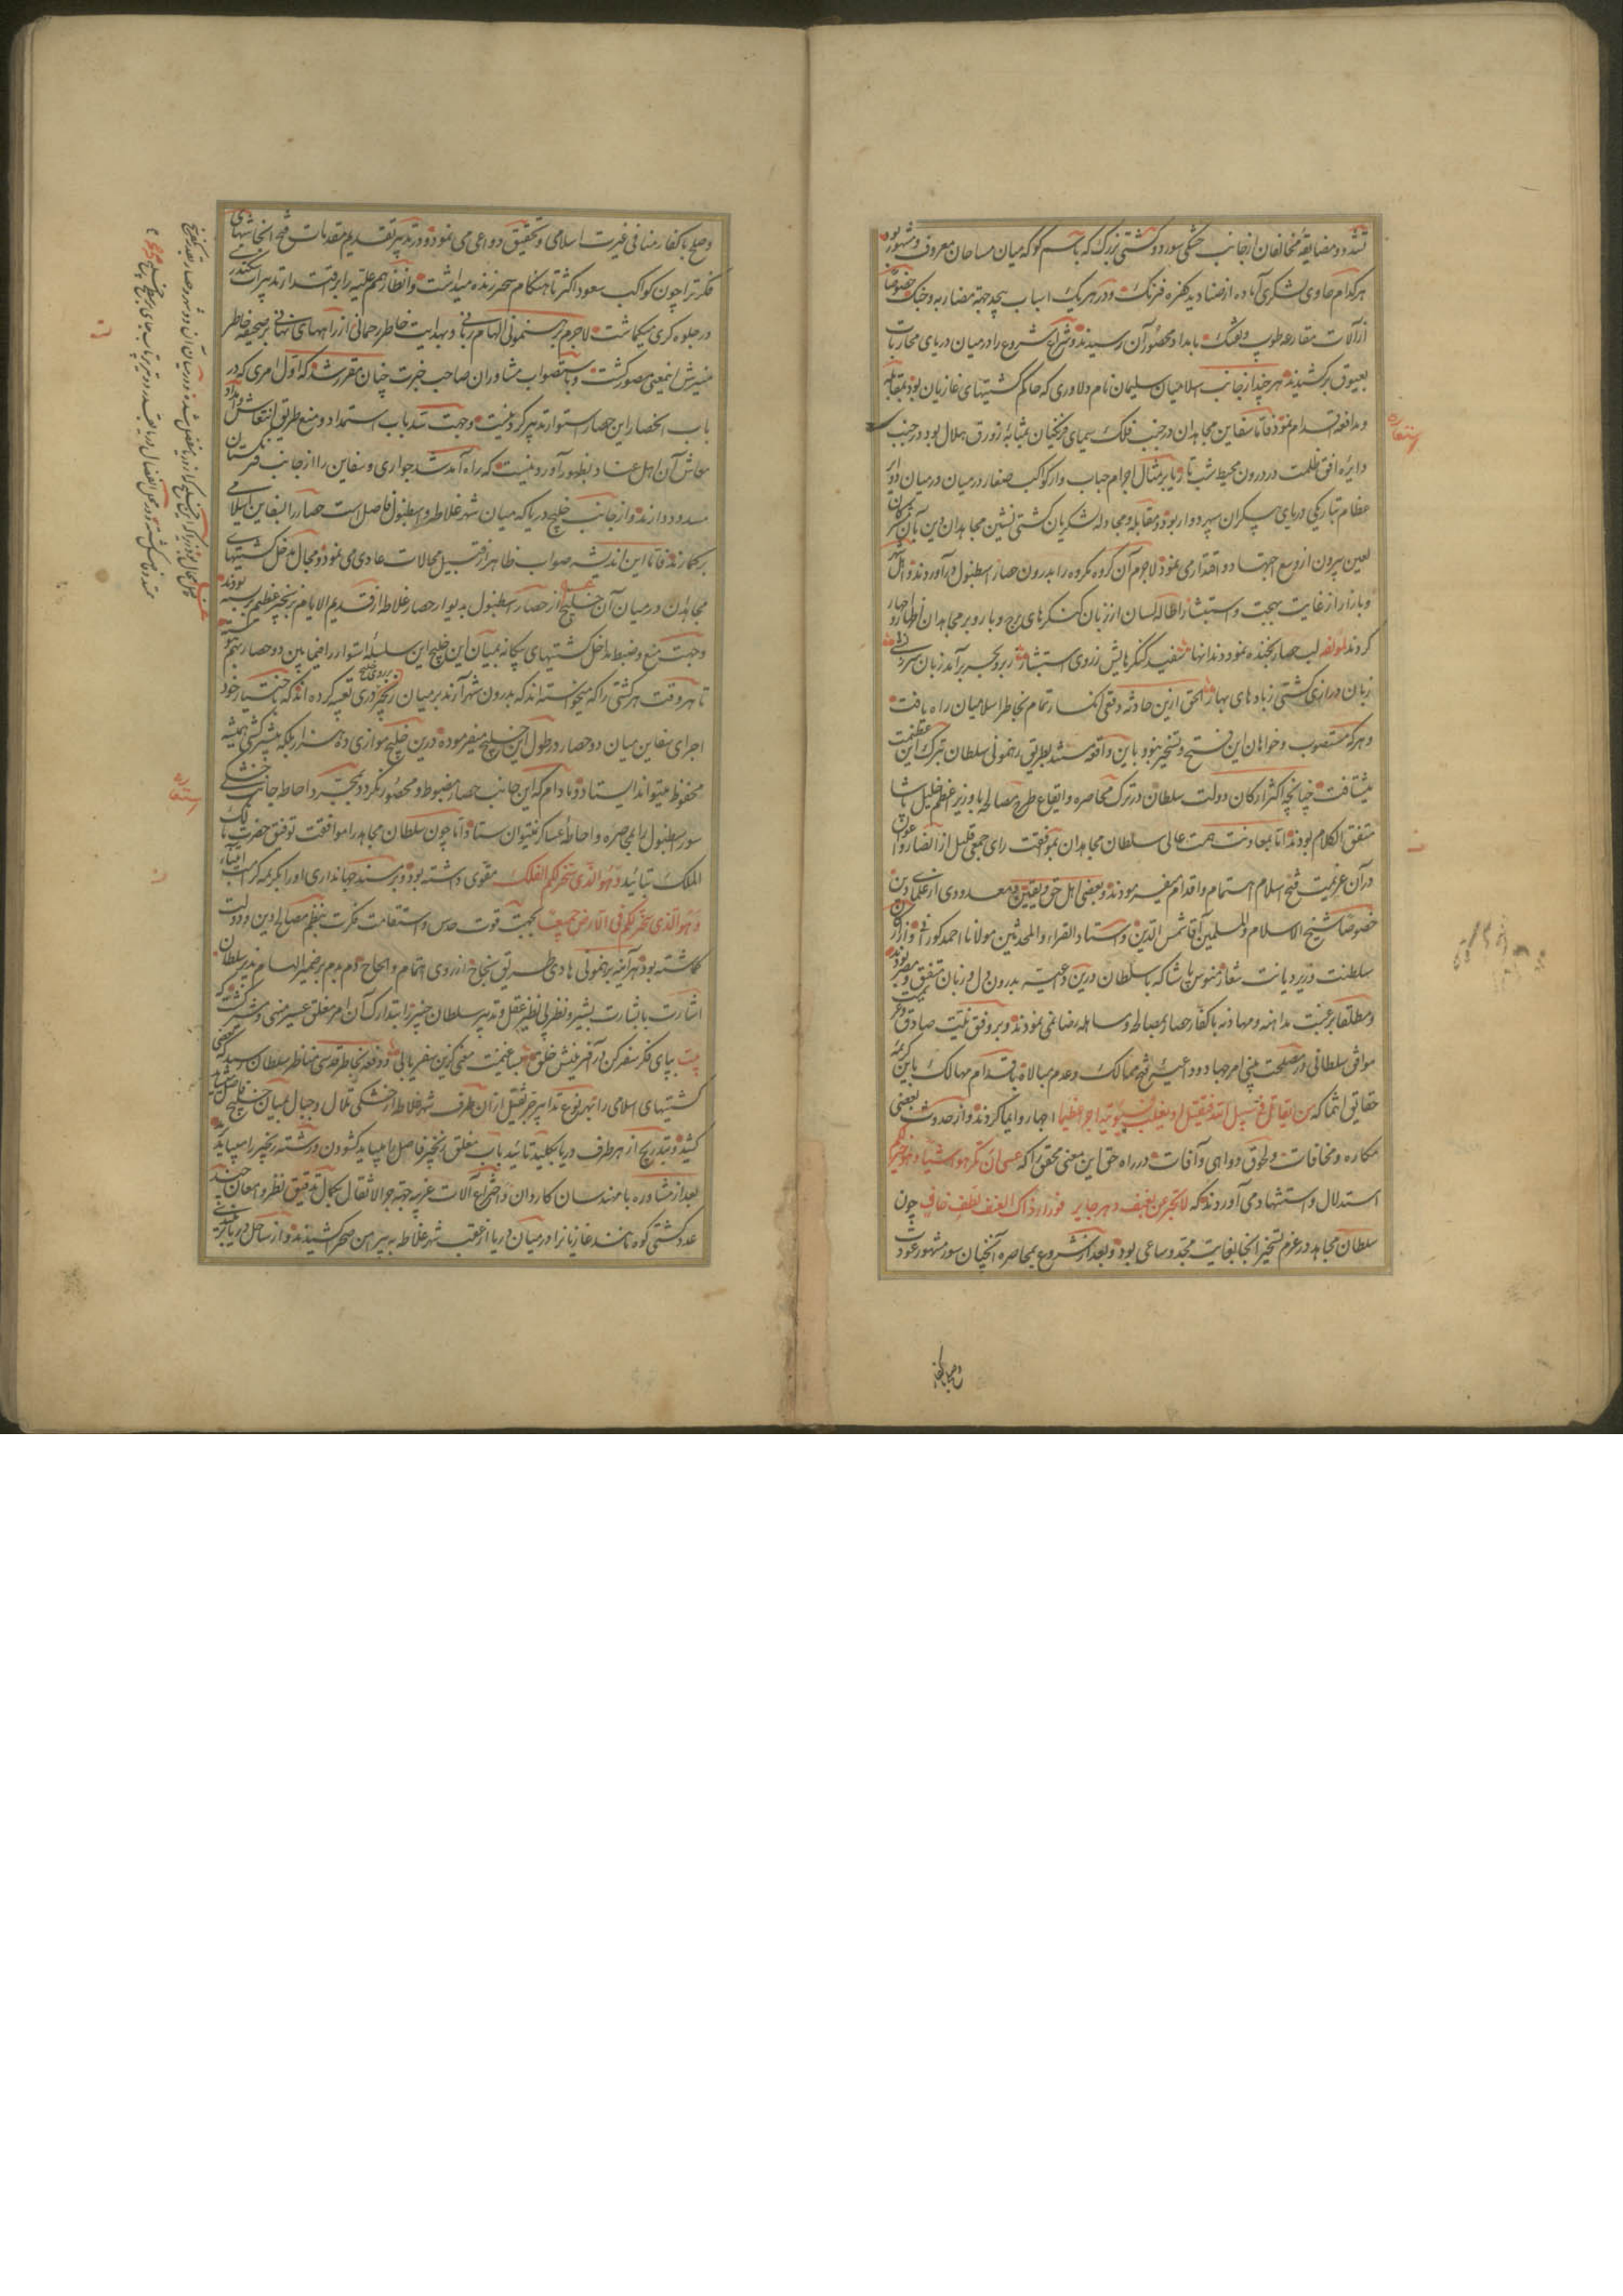 تشدد و مضایقهٔ مخالفان از جانب خشکی سور دو کشتی بزرک که باسم کوکه میان مساحان معروف و مشهور بود
هر کدام حاوی لشکری آماده از صنادید کفره فرنک و در هر یک اسباب بیحد جهة مضاربه و جنک خصوصا
از آلات مقارعه طوپ و تفنک بامداد محصوران رسیدند و شراع شروع را در میان دریای محاربات
بعیوق برکشیدند هر چند از جانب اسلامیان سلیمان نام دلاوری که حاکم کشتیهای غازیان بود بمقابله
و مدافعه اقدام نمود فاما سفاین مجاهدان در جنب فلک سیمای فرنکیان بمثابهٔ زورق هلال بود در جنب
دایرهٔ افق ظلمت در درون محیط شب تار و یا بر مثال اجرام حباب و از کواکب صغار در میان
عظام بتاریکی دریای بیکران سپهر دوار بود و مقابله و مجادله لشکریان کشتی نشین مجاهدان دین بآن مشرکان
لعین بیرون از وسع اجتهاد و اقتدار می نمود لاجرم آن کروه مکروه را بدرون حصار اسطنبول در آوردند و اهل شهر
و بازار از غایت بهجت و استبشار اطالهٔ لسان از زبان کنکرهای برج و بارو بر مجاهدان اظهار
کردند لمولفه لب حصار بخنده نمود دندانها سفید کنکرهایش ز روی استبشار ز بر و بحر برآمد زبان
زبان درازی کشتی ز بادهای بهار الحق ازین حادثه وقعی انکسار تمام بخاطر اسلامیان راه یافت
و هر که مستصوب و خواهان این فتح و تسخیر نبود باین واقعه مستند بطریق رهنمونی سلطان بترک این عظیمت
میشتافت چنانچه اکثر ارکان دولت سلطان در ترک محاصره و ایقاع طرح مصالحه با وزیر اعظم خلیل پاشا
متفق الکلام بودند اما بمعاونت همت عالی سلطان مجاهدان بموافقت رای جمعی قلیل از انصار و اعوان
در آن عزیمت فتح اسلام اهتمام و اقدام میفرمودند و بعضی اهل حق و یقین و معدودی از علمای دین
خصوصا شیخ الاسلام و المسلمین آقا شمس الدین و استاد القراء و المحدثین مولانا احمد کورانی و از ارکان
سلطنت وزیر دیانت شعار زغنوس پاشا که با سلطان درین داعیه بدرون دل و زبان متفق و مصر بودند
و مطلقا بر غبت مداهنه و مهادنه با کفار حصار بمصالحه و مساهله رضا نمی نمودند و بر وفق نیت صادق و عزیمت
موافق سلطانی در مصلحت بینی امر جهاد و داعیهٔ فتح ممالک و عدم مبالاة باقدام مهالک باین کریمهٔ
حقایق انتما که من یقاتل فی سبیل الله فیقتل او یغلب فسوف نؤتیه اجرا عظیما اجهار و ایما کردند و از حدوث بعضی
مکاره و مخافات و لحوق دواهی و آفات در راه حق این معنی محقق را که عسی ان تکرهوا شیئا و هو خیر لکم
استدلال و استشهاد می آوردند که لا تجزعن بعنف دهر جایر فوراء ذاک العنف لطف خاف چون
سلطان مجاهد در عزم تسخیر آنجا بغایت مجد و ساعی بود و بعد از شروع بمحاصره آنچنان سور مشهور عود
استعاره
و صلح با کفار منافی غیرت اسلامی و تحقیق دواعی می نمود و در تدبیر تقدیم مقدمات فتح
فکرت را چون کواکب سعود اکثر تا هنکام سحر زنده میداشت و انظار همم علیه را بر اقتدار تدبیرات اسکندری
در جلوه کری میکماشت لاجرم برهنمونی الهام ربانی و بهدایت خاطر رحمانی از راههای نهانی بر صحیفه خاطر
منیرش این معنی مصور کشت و باستصواب مشاوران صاحب خبرت چنان مقرر شد که اول امری که در
باب انحصار این حصار استوار تدبیر کردنیست و جهت سد باب استمداد و منع طریق انتعاش
معاش آن اهل عناد بظهور آوردنیست که راه آمد شد جواری و سفاین را از جانب فرنکستان
مسدود دارند و از جانب خلیج دریا که میان شهر غلاطه و اسطنبول فاصل است حصار را بسفاین اسلامی
برکمارند فاما این اندیشه صواب ظاهرا از قبیل محالات عادی می نمود و مجال مدخل کشتیهای
مجاهدان در میان آن خلیج از حصار اسطنبول بدیوار حصار غلاطه از قدیم الایام زنجیر عظیم بر بسته بودند
و جهت منع و ضبط مداخل کشتیهای بیکانه بمیان این خلیج این سلسلهٔ استوار را فیما بین دو حصار
تا هر وقت هر کشتی را که میخواسته اند که بدرون شهر آرند بر میان زنجیر دری تعبیه کرده اند که باختیار خود
اجرای سفاین میان دو حصار در طول این خلیج میفرموده و درین خلیج موازی ده هزار بلکه بیشتر کشتی همیشه
محفوظ میتواند ایستاد و مادام که این جانب حصار مضبوط و محصور نکردد بمجرد احاطه جانب خشکی
سور اسطنبول را بمحاصره و احاطهٔ عساکر نمیتوان ستاد و اما چون سلطان مجاهد را موافقت توفیق حضرت مالک
الملک بتایید و هو الذی سخر لکم الفلک مقوی داشته بود و بر مسند جهانداری او را بکریمه کرامت انتما
و هو الذی سخر لکم ما فی الارض جمیعا بجهت قوت حدس و استقامت فکرت بنظم مصالح دین و دولت
کماشته بود هر آینه برهنمونی هادی طریق نجاح از روی اهتمام و الحاح دم بدم بر ضمیر الهام پذیر سلطان
اشارت با بشارت بشیر و نظر بی نظیر عقل و تدبیر سلطان خبیر را بتدارک آن امر مغلق عسیر منهی و مشیر کشته که
بیت بپای فکر سفر کن در آفرینش خلق بسا غنیمت معنی کزین سفر یابی و دفعه بخاطر قدسی مناظر سلطان رسید که بعضی
کشتیهای اسلامی را بهر نوع تدابیر جر ثقیل از آن طرف شهر غلاطه از خشکی تلال و جبال بمیان خلیج فاصل باید
کشید و بتدریج از هر طرف دریا بکلید تایید باب مغلق زنجیر فاصل را میباید کشودن و رشته زنجیر را میباید
بعد از مشاوره با مهندسان کاردان و اختراع آلات غریبه جهة جر الاثقال بکمال تدقیق نظر و امعان چند
عدد کشتی کوه مانند غازیانرا در میان دریا از عقب شهر غلاطه به پیرامن صحرا کشیدند و از ساحل دریا
استعاره